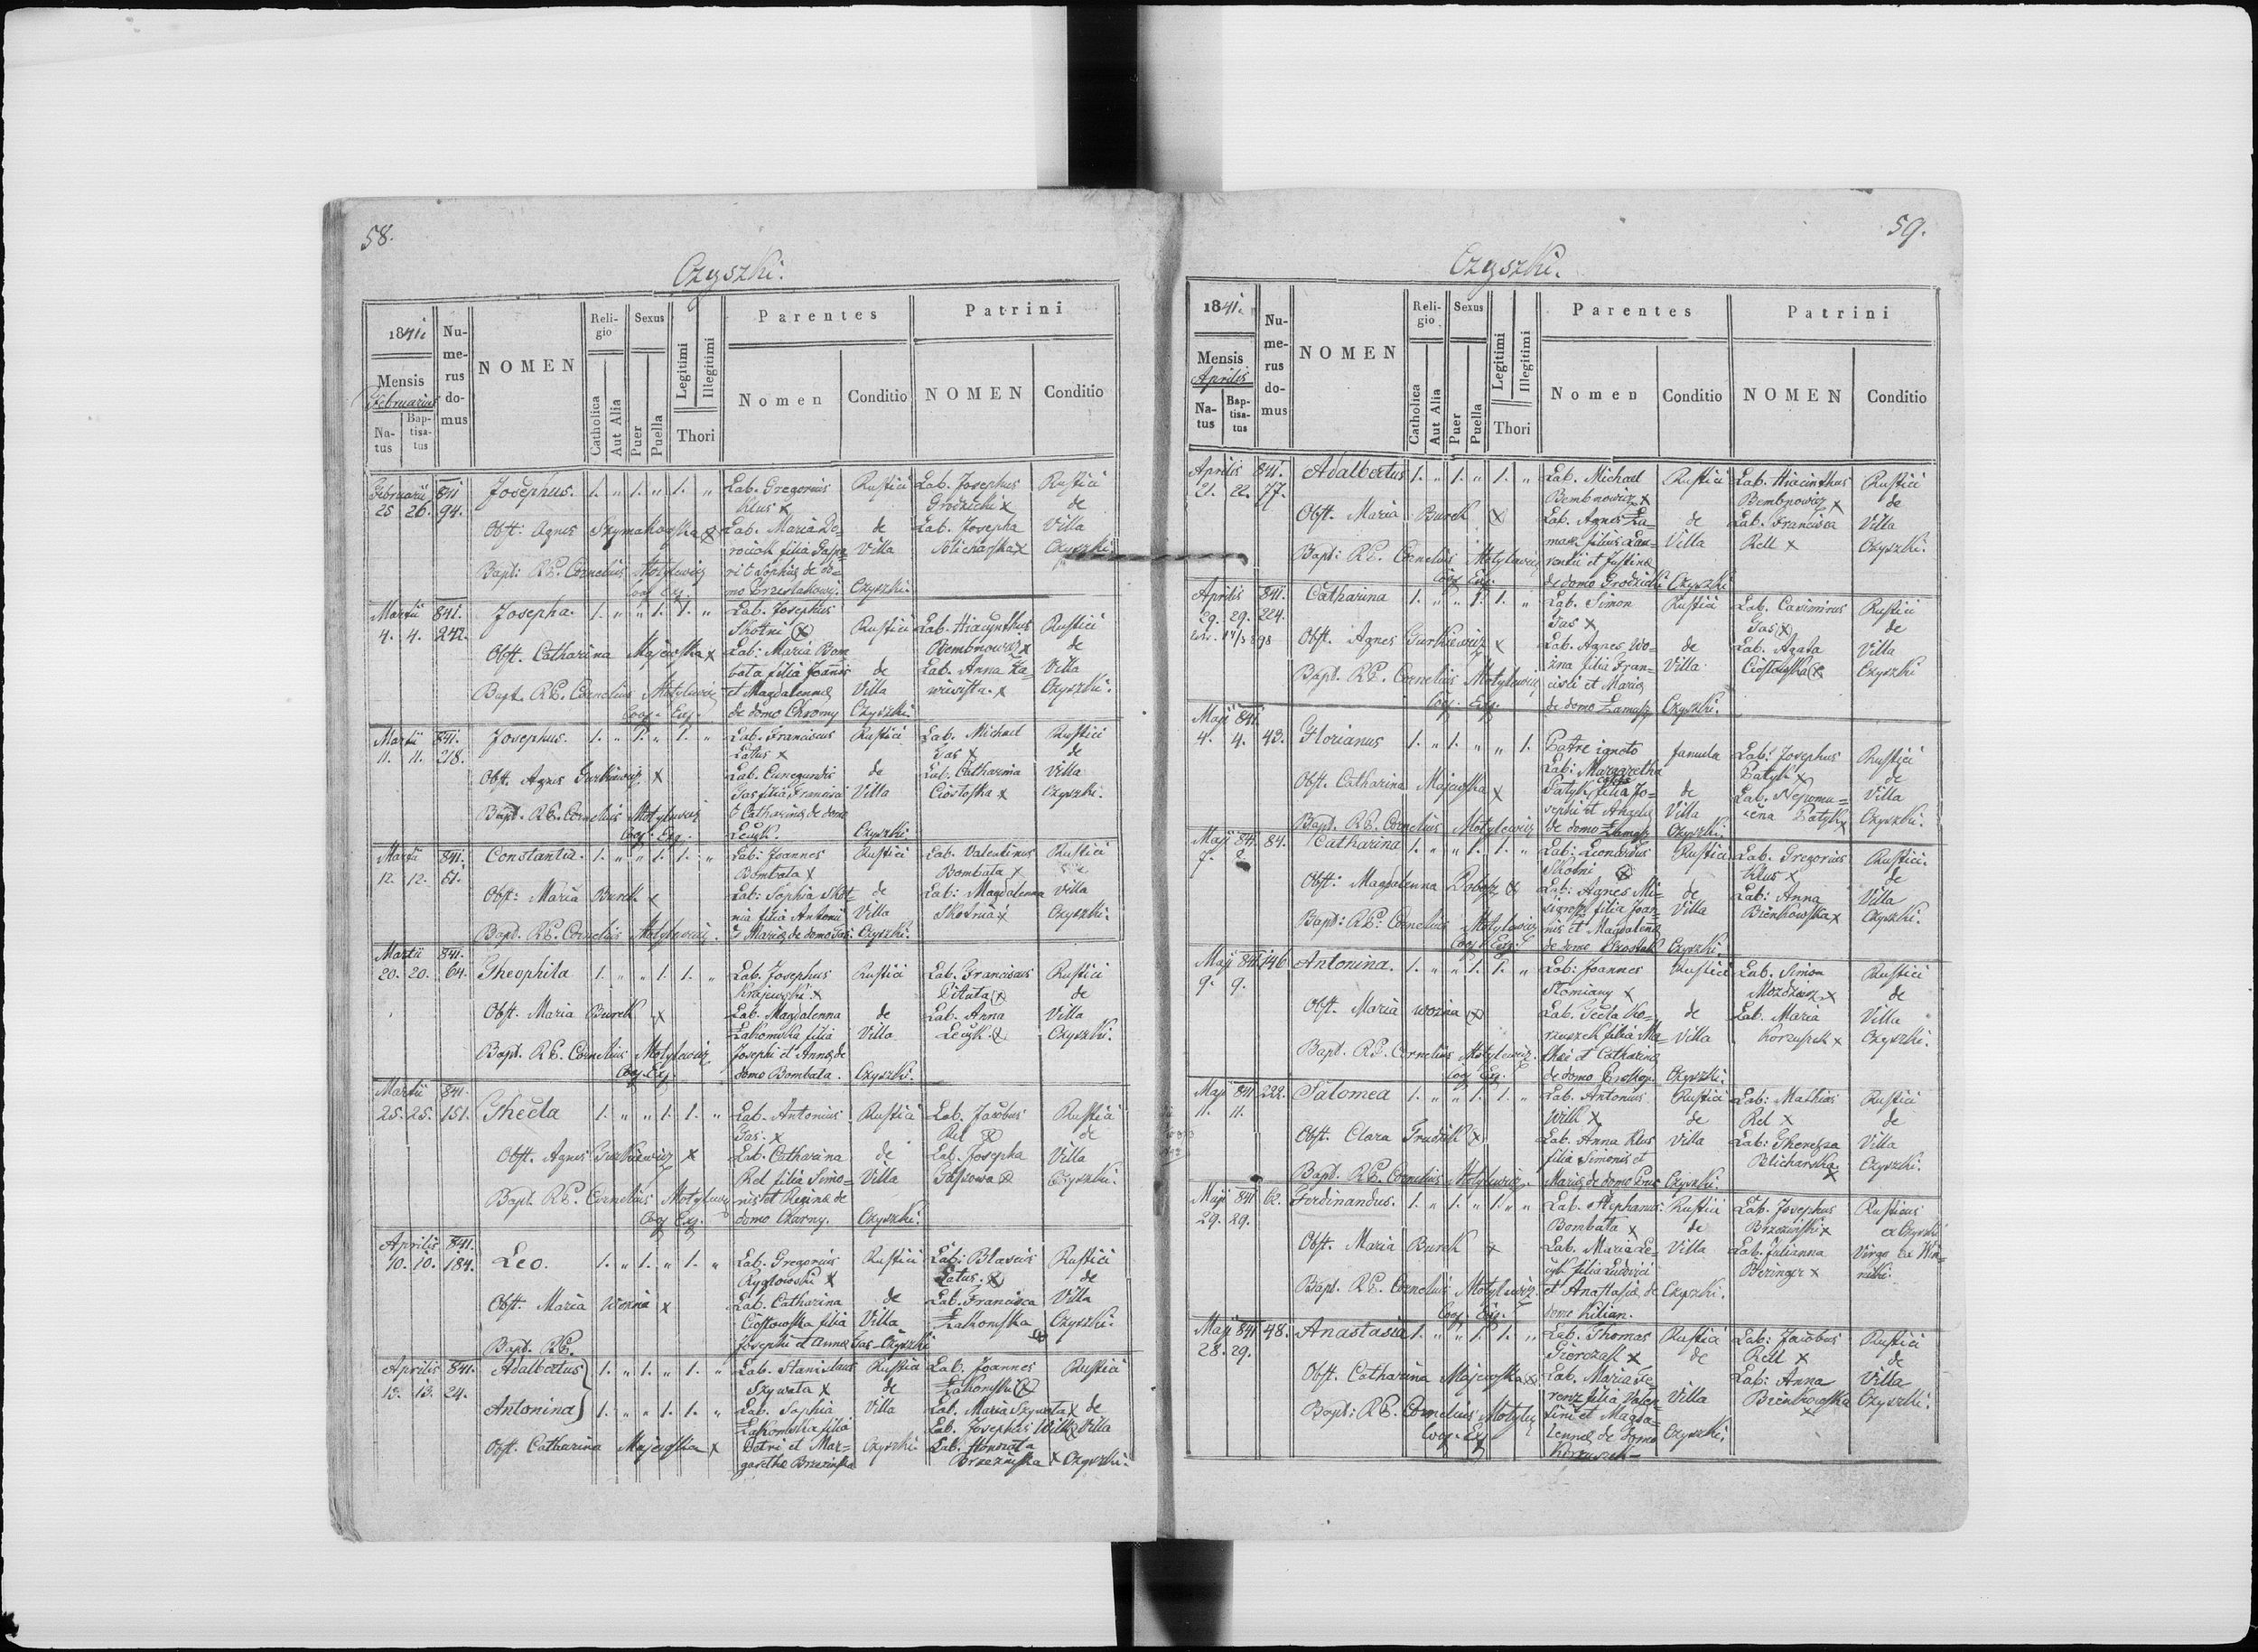 58.
Czyszki.
1841i
Mensis
Februarius
Na-
tus
Bap-
tisa-
tus
Nu-
me-
rus
do-
mus
NOMEN
Reli-
gio
Catholica
Aut Alia
Sexus
Puer
Puella
Legitimi
Illegitimi
Thori
Parentes
Nomen
Conditio
Patrini
NOMEN
Conditio
Februarii 841 Josephus. 1. „ 1. „ 1. „ Lab. Gregorius Rustici Lab. Josephus Rustici
25 26. 94. Klus x Grodzicki x de
Obst: Agnes Szymakowska x Lab. Maria Do- de Lab. Josepha Villa
rociak filia Gaspa- Villa Czyszki.
Bapt: R.P. Cornelius Motylewicz ri & Sophiæ de do-
Coop. Exp. mo Czyszki.
Martii 841. Josepha. 1. „ „ 1. 1. „ Lab. Josephus
4. 4. 242. Skotni x Rustici Lab. Hiacynthus Rustici
Obst. Catharina Majewska x Lab: Maria Bom Bembnowicz x de
bata filia Joannis de Lab. Anna Za- Villa
Bapt. R.P. Cornelius Motylewicz et Magdalennæ Villa x Czyszki.
Coop. Exp. de domo Chromy Czyszki.
Martii 841. Josephus. 1. „ 1. „ 1. „ Lab. Franciscus Rustici Lab. Michael Rustici
11. 11. 218. Latus x Gas x de
Obst. Agnes Gurkiewicz x Lab. Cunegundis de Lab. Catharina Villa
Gas filia Francisci Villa Ciostoska x Czyszki.
Bapt. R.P. Cornelius Motylewicz & Catharinæ de domo
Coop. Exp. Lecyk. Czyszki
Martii 841. Constantia. 1. „ „ 1. 1. „ Lab: Joannes Rustici Lab. Valentinus Rustici
12. 12. 61. Bombata x Bombata x de
Obst: Maria Burek x Lab: Sophia Skot- de Lab: Magdalenna Villa
nia filia Antonii Villa Skotnia x Czyszki.
Bapt. R.P. Cornelius Motylewicz. & Mariæ de domo Gas: Czyszki.
Martii 841.
20. 20. 64. Theophila 1. „ „ 1. 1. „ Lab. Josephus Rustici Lab. Franciscus Rustici
Krajewski x x de
Obst. Maria Burek x Lab. Magdalenna de Lab. Anna Villa
Łakomska filia Villa Lecyk. x Czyszki.
Bapt. R.P. Cornelius Motylewicz Josephi et Annæ de
Coop. Exp. domo Bombata. Czyszki.
Martii 841.
25. 25. 151. Thecla 1. „ „ 1. 1. „ Lab. Antonius Rustici Lab. Jacobus Rustici
Gas. x Rel x de
Obst. Agnes Gurkiewicz x Lab. Catharina de Lab. Josepha Villa
Rel filia Simo- Villa Gassowa x Czyszki.
Bapt. R.P. Cornelius Motylewicz nis et Reginæ de
Coop Exp. domo Czarny. Czyszki.
Aprilis 841.
10. 10. 184. Leo. 1. „ 1. „ 1. „ Lab. Gregorius Rustici Lab: Blasius Rustici
Ryglowski x Latus. x de
Obst. Maria Woznia x Lab. Catharina de Lab. Francisca Villa
Ciostowska filia Villa Łakomska x Czyszki.
Bapt. R.P. Josephi et Annæ Gas - Czyszki
Aprilis 841. Adalbertus 1. „ 1. „ 1. „ Lab. Stanislaus Rustici Lab. Joannes Rustici
13. 13. 24. Szywata x de Łakomski x
Antonina 1. „ „ 1. 1. „ Lab. Sophia Villa Lab. Maria Szywata x de
Łakomska filia Lab. Josephus Wilk x Villa
Obst. Catharina Majewska x Petri et Mar- Czyszki Lab. Honorata
garethæ Brzezinska Brzezinska x Czyszki.
59.
Czyszki.
1841i
Mensis
Aprilis
Na-
tus
Bap-
tisa-
tus
Nu-
me-
rus
do-
mus
NOMEN
Reli-
gio
Catholica
Aut Alia
Sexus
Puer
Puella
Legitimi
Illegitimi
Thori
Parentes
Nomen
Conditio
Patrini
NOMEN
Conditio
Aprilis 841. Adalbertus 1. „ 1. „ 1. „ Lab. Michael Rustici Lab. Hiacinthus Rustici
21. 22. 77. Bembnowicz x Bembnowicz x de
Obst. Maria Burek x Lab. Agnes Ła- de Lab. Francisca Villa
masz filius Lau- Villa Rell x Czyszki.
Bapt: R.P. Cornelius Motylewicz rentii et Justinæ
Coop Exp. de domo Grodzicki Czyszki
Aprilis 841. Catharina 1. „ „ 1. 1. „ Lab. Simon Rustici Lab. Casimirus Rustici
29. 29. 224. Gas x Gas x de
Obst. Agnes Gurkiewicz x Lab. Agnes Wo- de Lab. Agata Villa
zna filia Fran- Villa Ciostowska x Czyszki
Bapt. R.P. Cornelius Motylewicz cisci et Mariæ
Coop. Exp. de domo Łamasz Czyszki.
Maji 841.
4. 4. 43. Florianus 1. „ 1. „ „ 1. Patre ignoto famula Lab. Josephus Rustici
Lab: Margaretha Patyk x de
Obst. Catharina Majewska x Patyk filia Jo- de Lab. Nepomu- Villa
sephi et Angelæ Villa cena Patyk x Czyszki.
Bapt. R.P. Cornelius Motylewicz de domo Łamasz Czyszki.
Maji 841. 84. Catharina 1. „ „ 1. 1. „ Lab: Leonardus Rustici Lab. Gregorius Rustici.
Skotni x Klus x de
Obst: Magdalenna x Lab: Agnes Mi- de Lab: Anna Villa
filia Joan- Villa Bienkowska x Czyszki.
Bapt: R.P. Cornelius Motylewicz nis et Magdalenæ
Coop Exp. de domo Czyszki.
Maji 841. 146 Antonina. 1. „ „ 1. 1. „ Lab: Joannes Rustici Lab. Simon Rustici
9. 9. Słomiany x Mozdzierz x de
Obst. Maria Wozna x Lab. Tecla Ko- de Lab. Maria Villa
rzuszek filia Ma- Villa Korzuszek x Czyszki.
Bapt. R.P. Cornelius Motylewicz. thæi et Catharinæ
Coop Exp. de domo Prokop. Czyszki.
Maji 841 222. Salomea 1. „ „ 1. 1. „ Lab. Antonius Rustici Lab: Mathias Rustici
11. 11. Wilk x de Rel x de
Obst. Clara Grudzik x Lab. Anna Klus Villa Lab: Theresa Villa
filia Simonis et Plicharska x Czyszki.
Bapt. R.P. Cornelius Motylewicz. Mariæ de domo Czyszki.
Maji 841 62. Ferdinandus. 1. „ 1. „ 1. „ Lab. Stephanus Rustici Lab. Josephus Rusticus
29. 29. Bombata x de Brzezinski x ex Czyszki
Obst. Maria Burek x Lab. Maria Le- Villa Lab. Julianna Virgo ex Win-
cyk filia Ludovici Beringer x niki.
Bapt. R.P. Cornelius Motylewicz et Anastasiæ de Czyszki.
Coop. Exp. domo Kilian.
Maji 841 48. Anastasia 1. „ „ 1. 1. „ Lab. Thomas Rustici Lab: Jacobus Rustici
28. 29. Giorczak x de Rell x de
Obst. Catharina Majewska x Lab. Maria Fe Lab: Anna Villa
renz filia Valen Villa Bienkowska x Czyszki.
Bapt: R.P. Cornelius Motylew tini et Magda-
Coop. Exp lennæ de domo Czyszki.
Korzuszek